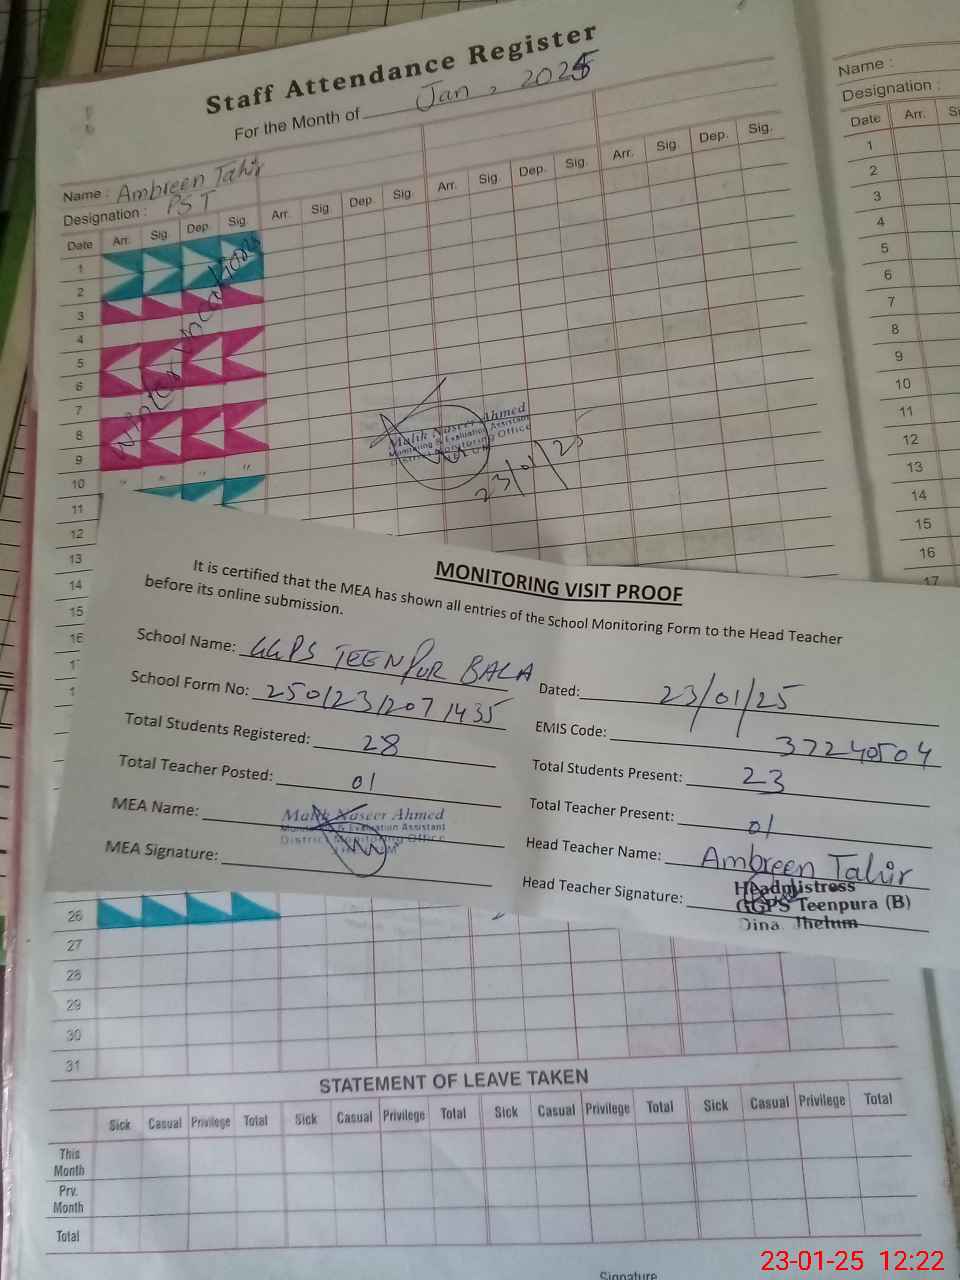 Staff Attendance Register
For the Month of Jan, 2025
Name : Ambreen Tahir
Designation : PST
Date Arr. Sig. Dep. Sig. Arr. Sig. Dep. Sig. Arr. Sig. Dep. Sig. Arr. Sig. Dep. Sig.
1
2
3
4
5
6
7
8
9
10
11
12
13
14
15
16
winter vacations
Malik Naseer Ahmed
Monitoring & Evaluation Assistant
District Monitoring Office
23/01/25
Name :
Designation :
Date Arr.
1
2
3
4
5
6
7
8
9
10
11
12
13
14
15
16
17
MONITORING VISIT PROOF
It is certified that the MEA has shown all entries of the School Monitoring Form to the Head Teacher
before its online submission.
School Name: GGPS TEENPUR BALA
Dated: 23/01/25
School Form No: 25012312071435
EMIS Code: 37240504
Total Students Registered: 28
Total Students Present: 23
Total Teacher Posted: 01
Total Teacher Present: 01
MEA Name:
Malik Naseer Ahmed
Monitoring & Evaluation Assistant
District Monitoring Office
JHELUM
Head Teacher Name: Ambreen Tahir
MEA Signature:
Head Teacher Signature:
Headmistress
GGPS Teenpura (B)
Dina, Jhelum
26
27
28
29
30
31
STATEMENT OF LEAVE TAKEN
Sick Casual Privilege Total Sick Casual Privilege Total Sick Casual Privilege Total Sick Casual Privilege Total
This
Month
Prv.
Month
Total
Signature
23-01-25 12:22